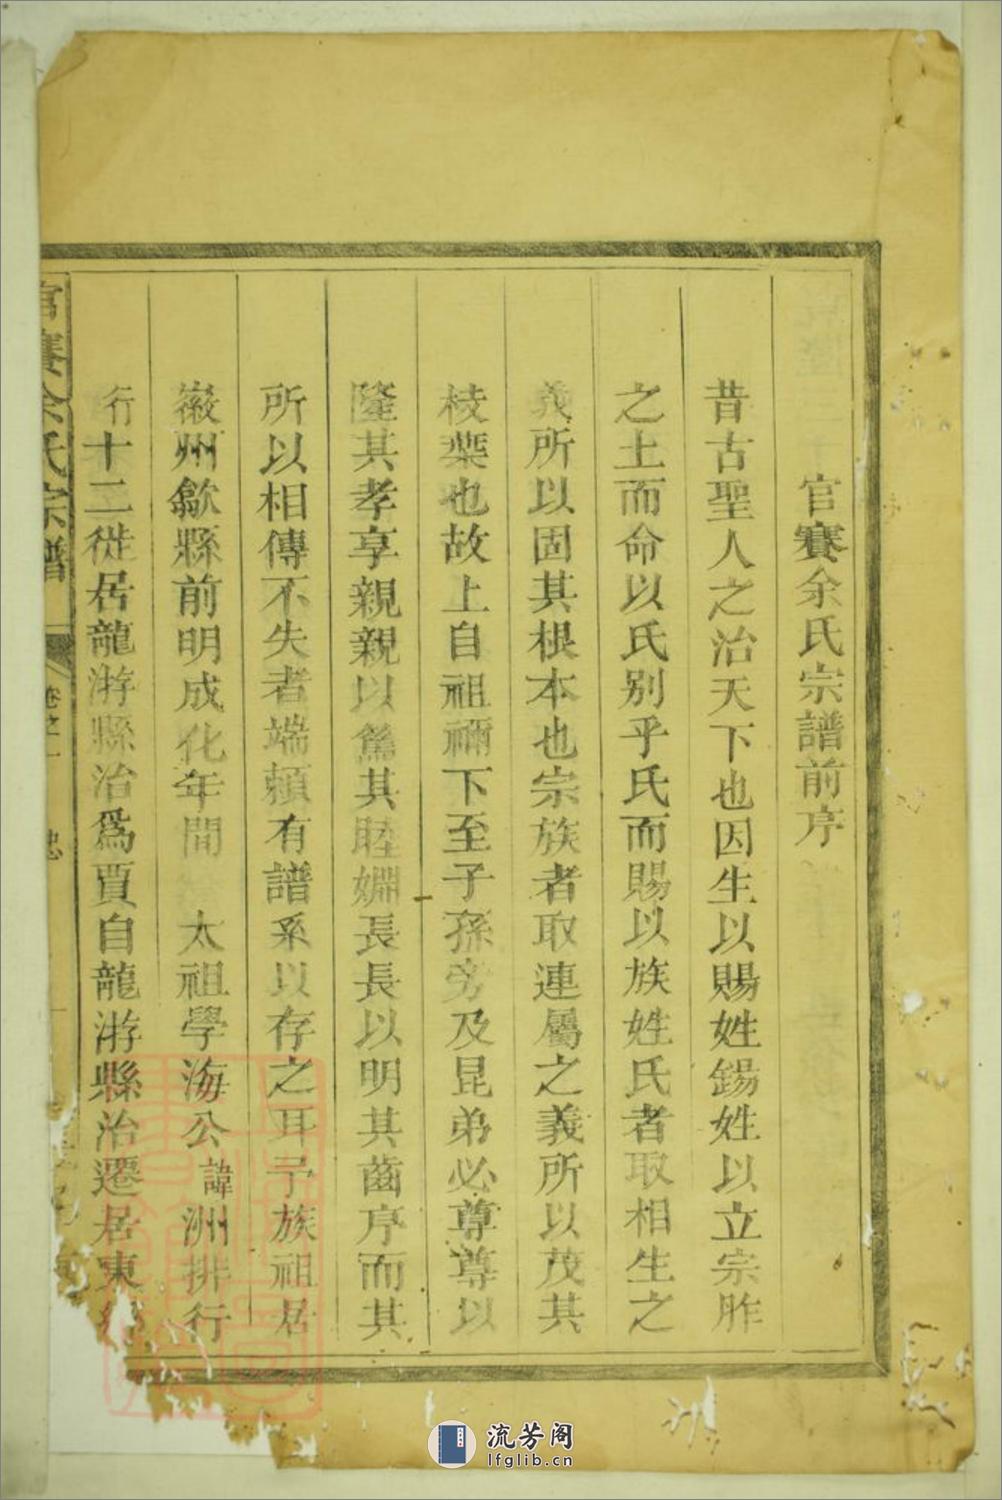 官賽余氏宗譜前序
昔古聖人之治天下也因生以賜姓錫姓以立宗胙
之土而命以氏别乎氏而賜以族姓氏者取相生之
義所以固其根本也宗族者取連屬之義所以茂其
枝葉也故上自祖禰下至子孫旁及昆弟必尊尊以
隆其孝享親親以篤其睦婣長長以明其齒序而其
所以相傳不失者端賴有譜系以存之耳予族祖居
徽州歙縣前明成化年間 太祖學海公諱洲排行
行十二徙居龍游縣治爲賈自龍游縣治遷居東
官賽余氏宗譜 卷之一
流芳阁
lfglib.cn